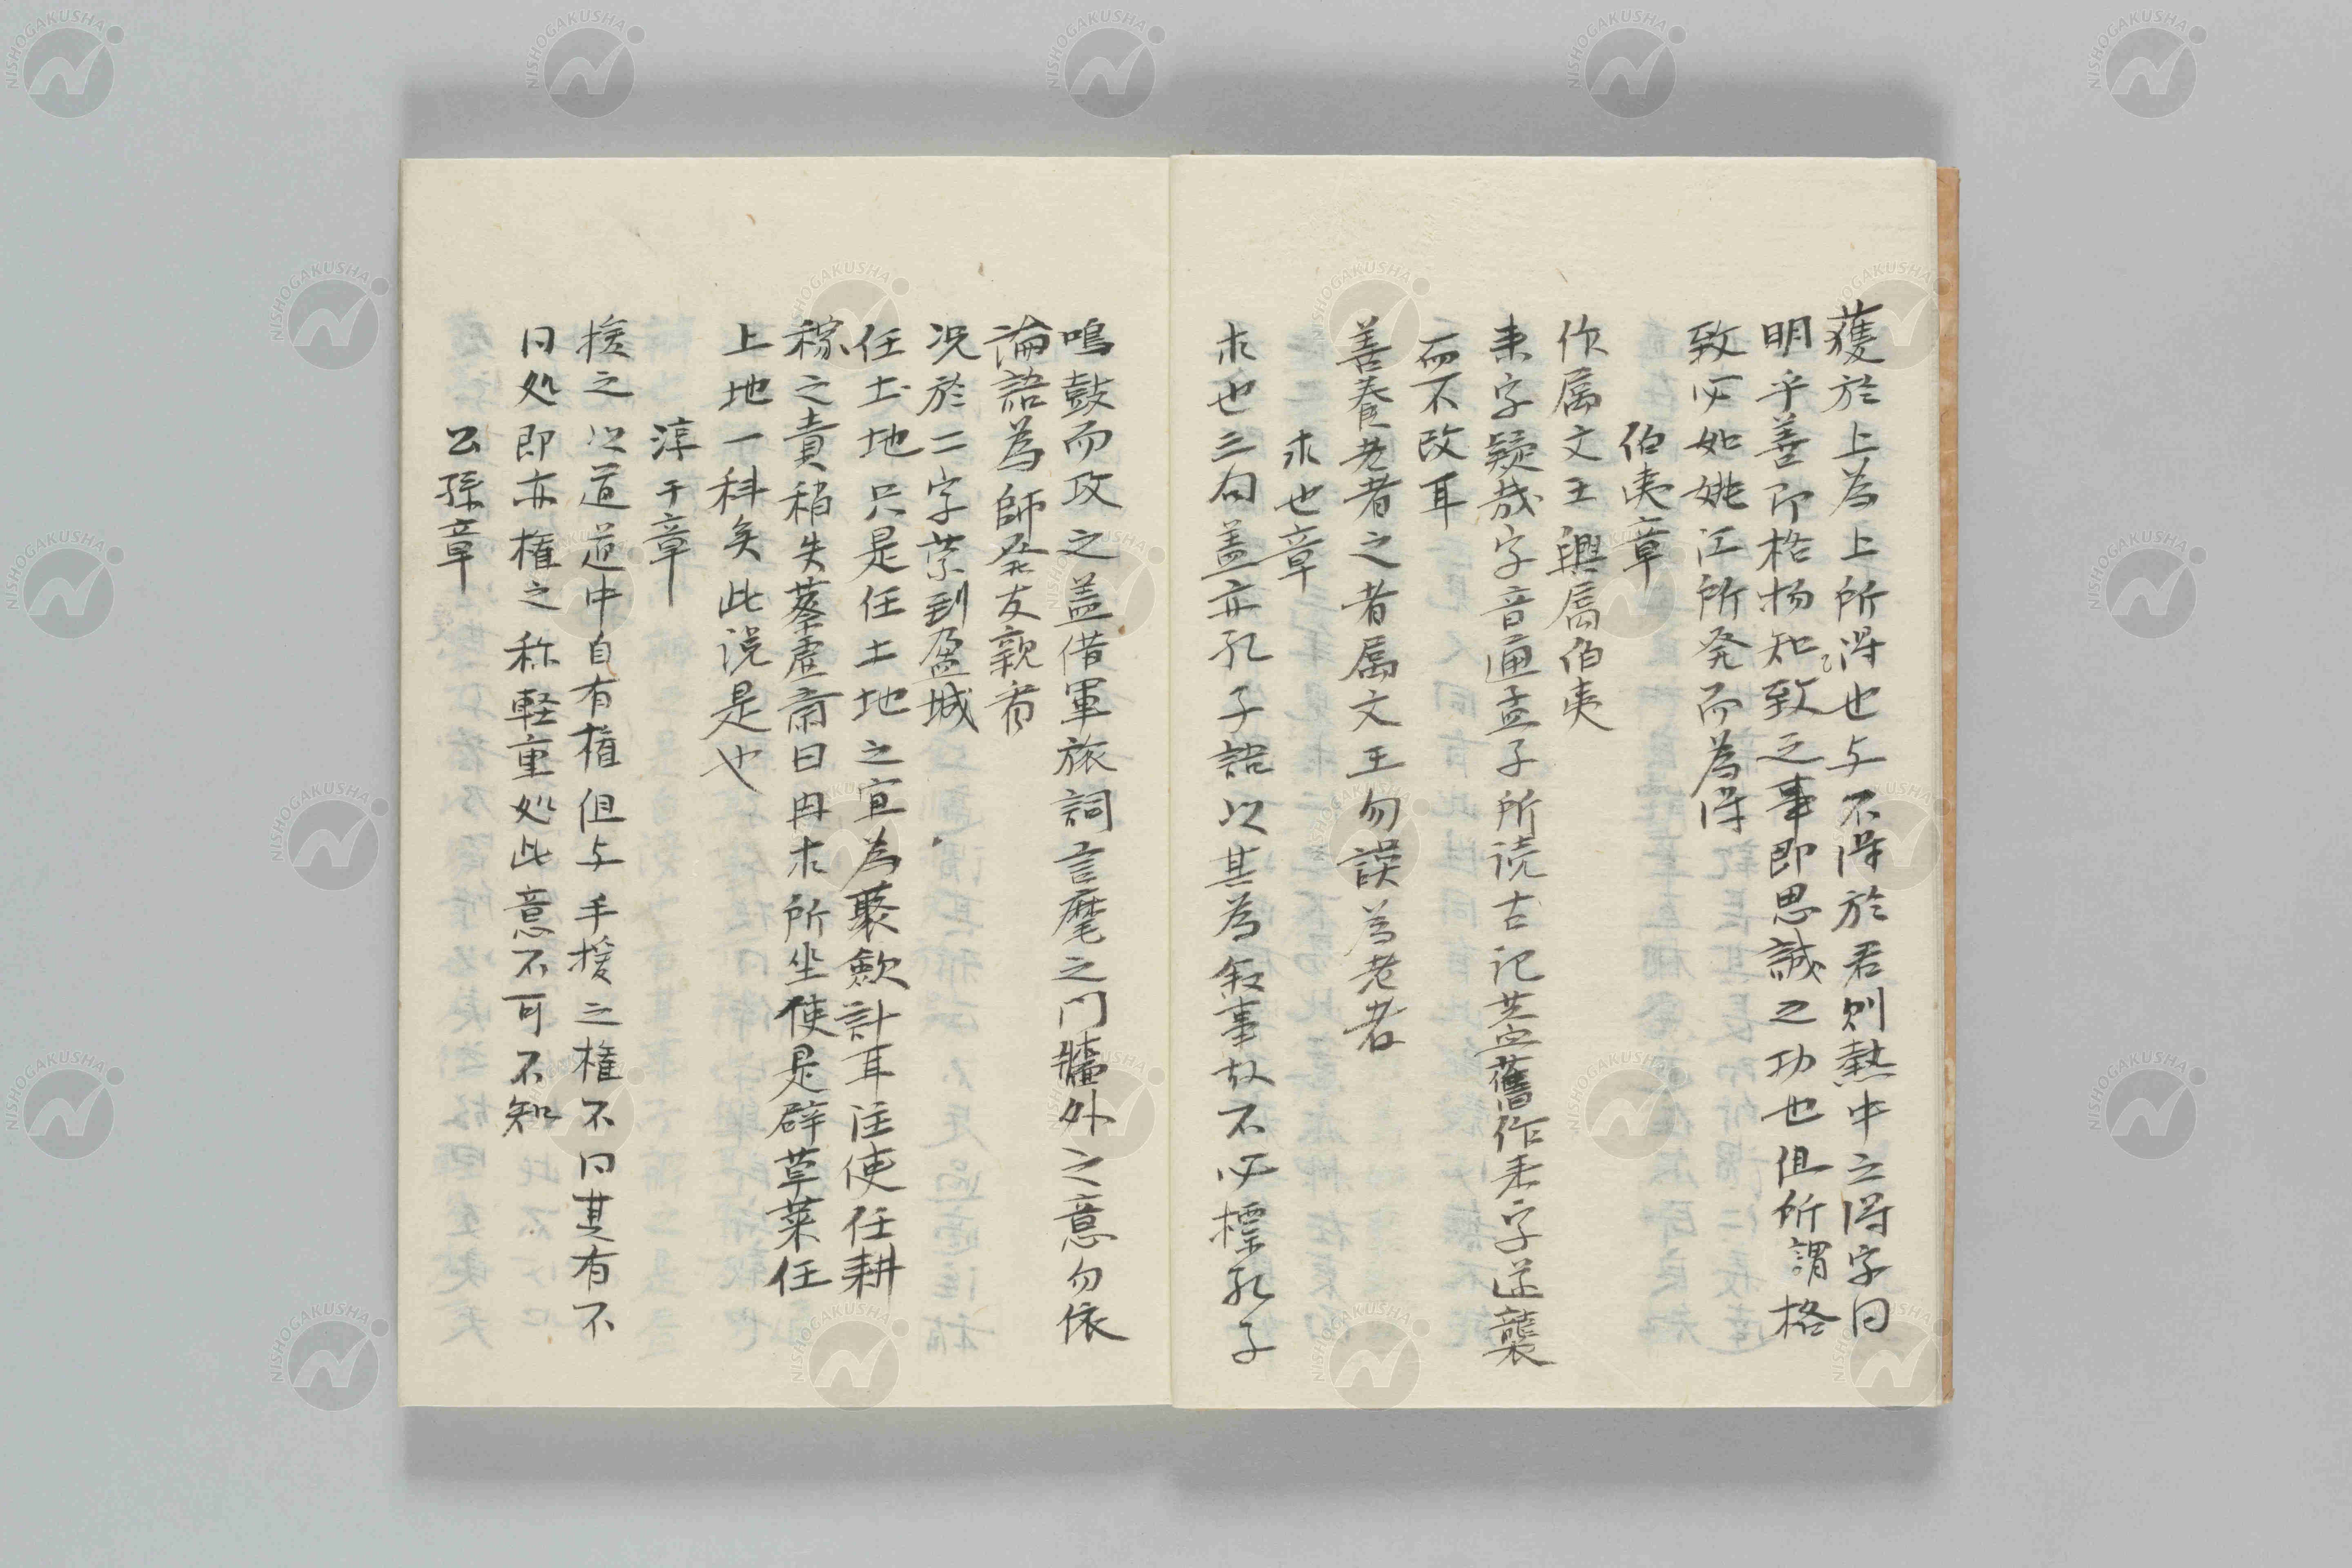 獲於上為上所得也与不得於君則熱中之得字同
明乎善即格物知致之事即思誠之功也但所謂格
致必如姚江所発而為得
伯夷章
作属文王興属伯夷
来字疑哉字音通孟子所読古記盖舊作来字遂襲
而不改耳
善養老者之者属文王勿誤為老者
求也章
求也三句盖亦孔子語以其為叙事故不必標孔子
鳴鼓而攻之盖借軍旅詞言麾之門牆外之意勿依
論語為師友親看
况於二字蒙到盈城
任土地只是任土地之宜為聚斂計耳注使任耕
稼之責稍失蔡虚斎曰冉求所坐使是辟草萊任
土地一科矣此説是也
淳于章
援之以道道中自有権但与手援之権不同其有不
同処即亦権之称軽重処此意不可不知
公孫章
NISHOGAKUSHA